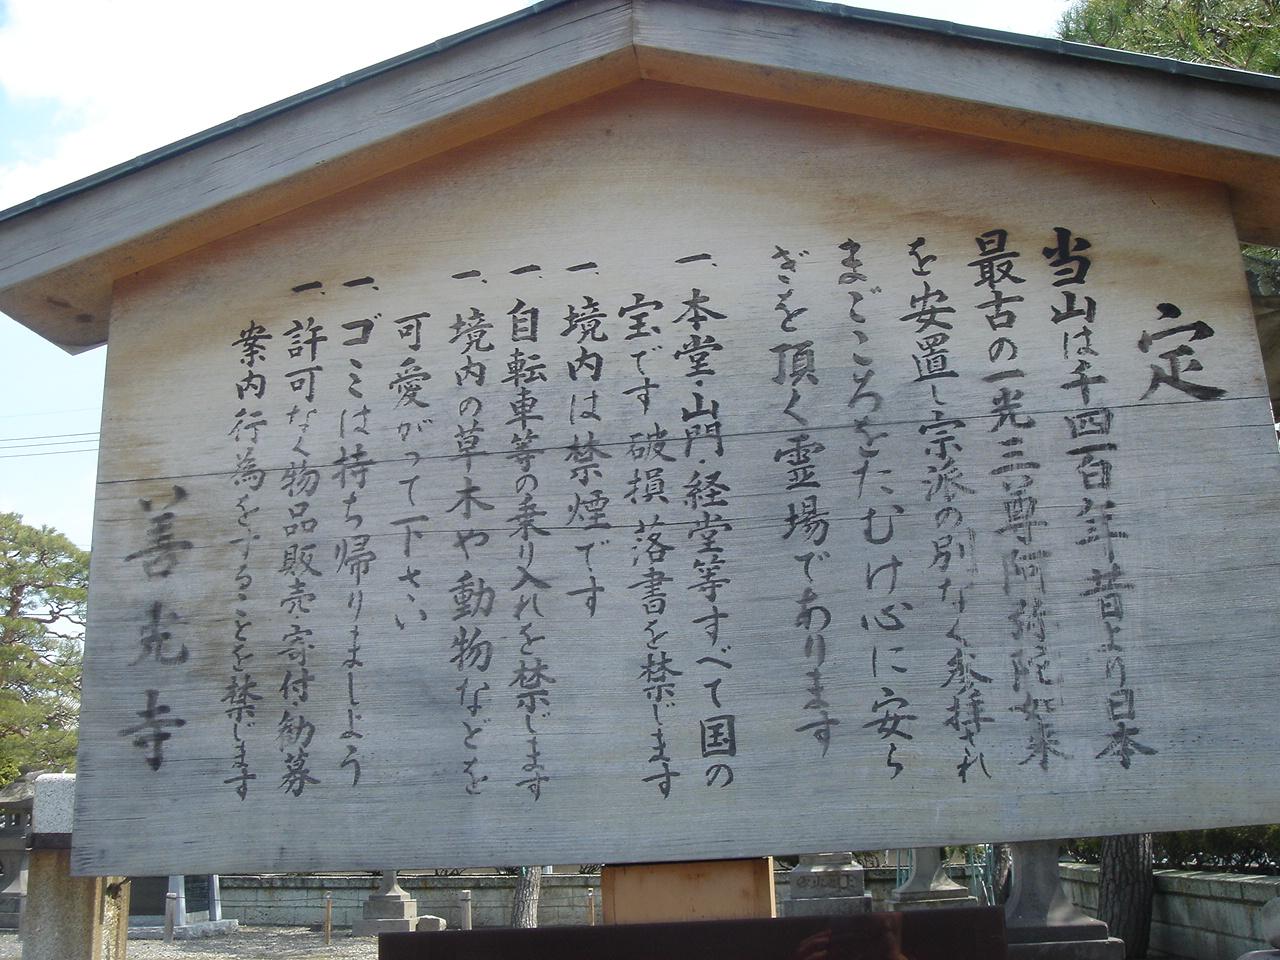 定
当山は千四百年昔より日本
最古の一光三尊阿弥陀如来
を安置し宗派の別なく参拝され
まごころをたむけ心に安ら
ぎを頂く霊場であります
一、本堂・山門・経堂等すべて国の
宝です破損落書を禁じます
一、境内は禁煙です
一、自転車等の乗り入れを禁じます
一、境内の草木や動物などを
可愛がって下さい
一、ゴミは持ち帰りましよう
一、許可なく物品販売・寄付・勧募
案内行為をすることを禁じます
善光寺